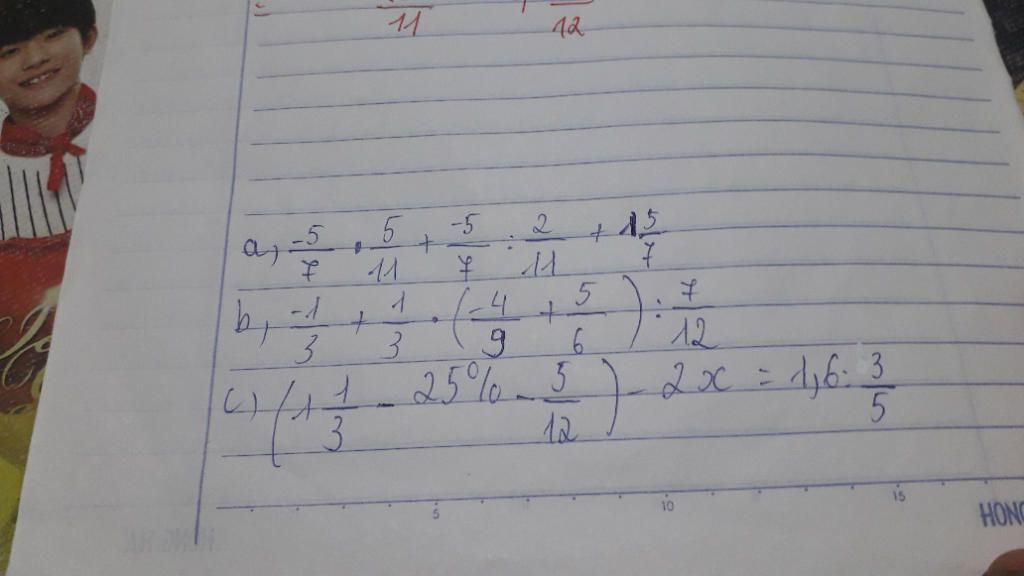 = 11 + 12
a, -5/7 . 5/11 + -5/7 : 2/11 + 1 5/7
b, -1/3 + 1/3 . (-4/9 + 5/6) : 7/12
c) (1 1/3 - 25% - 5/12) - 2x = 1,6 : 3/5
5 10 15
HONG
HONG HA